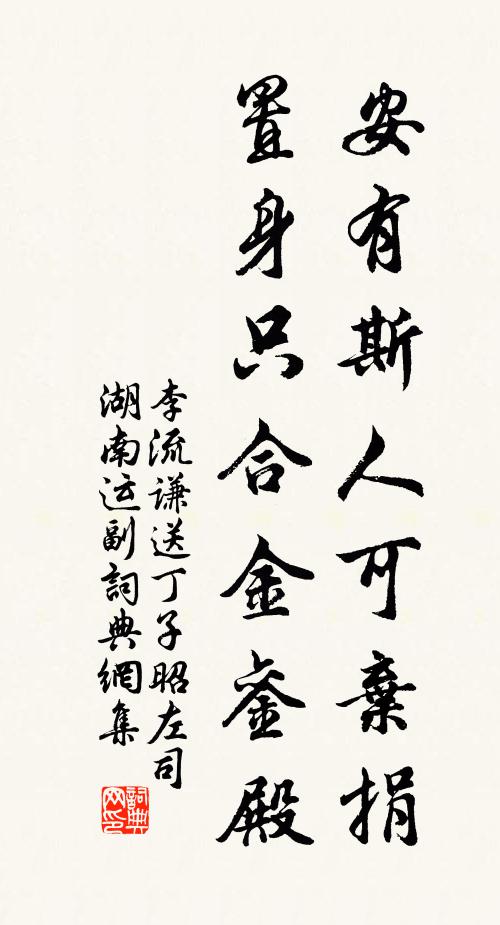 安有斯人可棄捐
置身只合金銮殿
李流謙送丁子昭左司
湖南运副詞典網集
詞典
网印